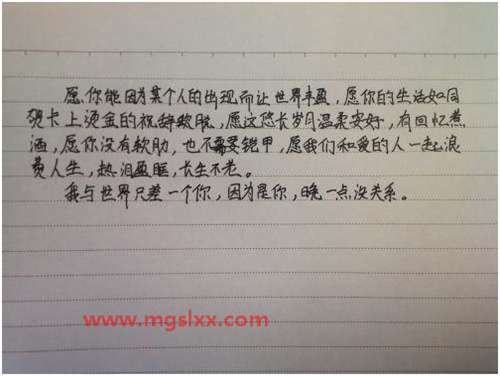 愿你能因为某个人的出现而让世界丰盈，愿你的生活如同
贺卡上烫金的祝辞欢脱，愿这悠长岁月温柔安好，有回忆煮
酒，愿你没有软肋，也不需要铠甲，愿我们和爱的人一起浪
费人生，热泪盈眶，长生不老。
我与世界只差一个你，因为是你，晚一点没关系。
www.mgslxx.com